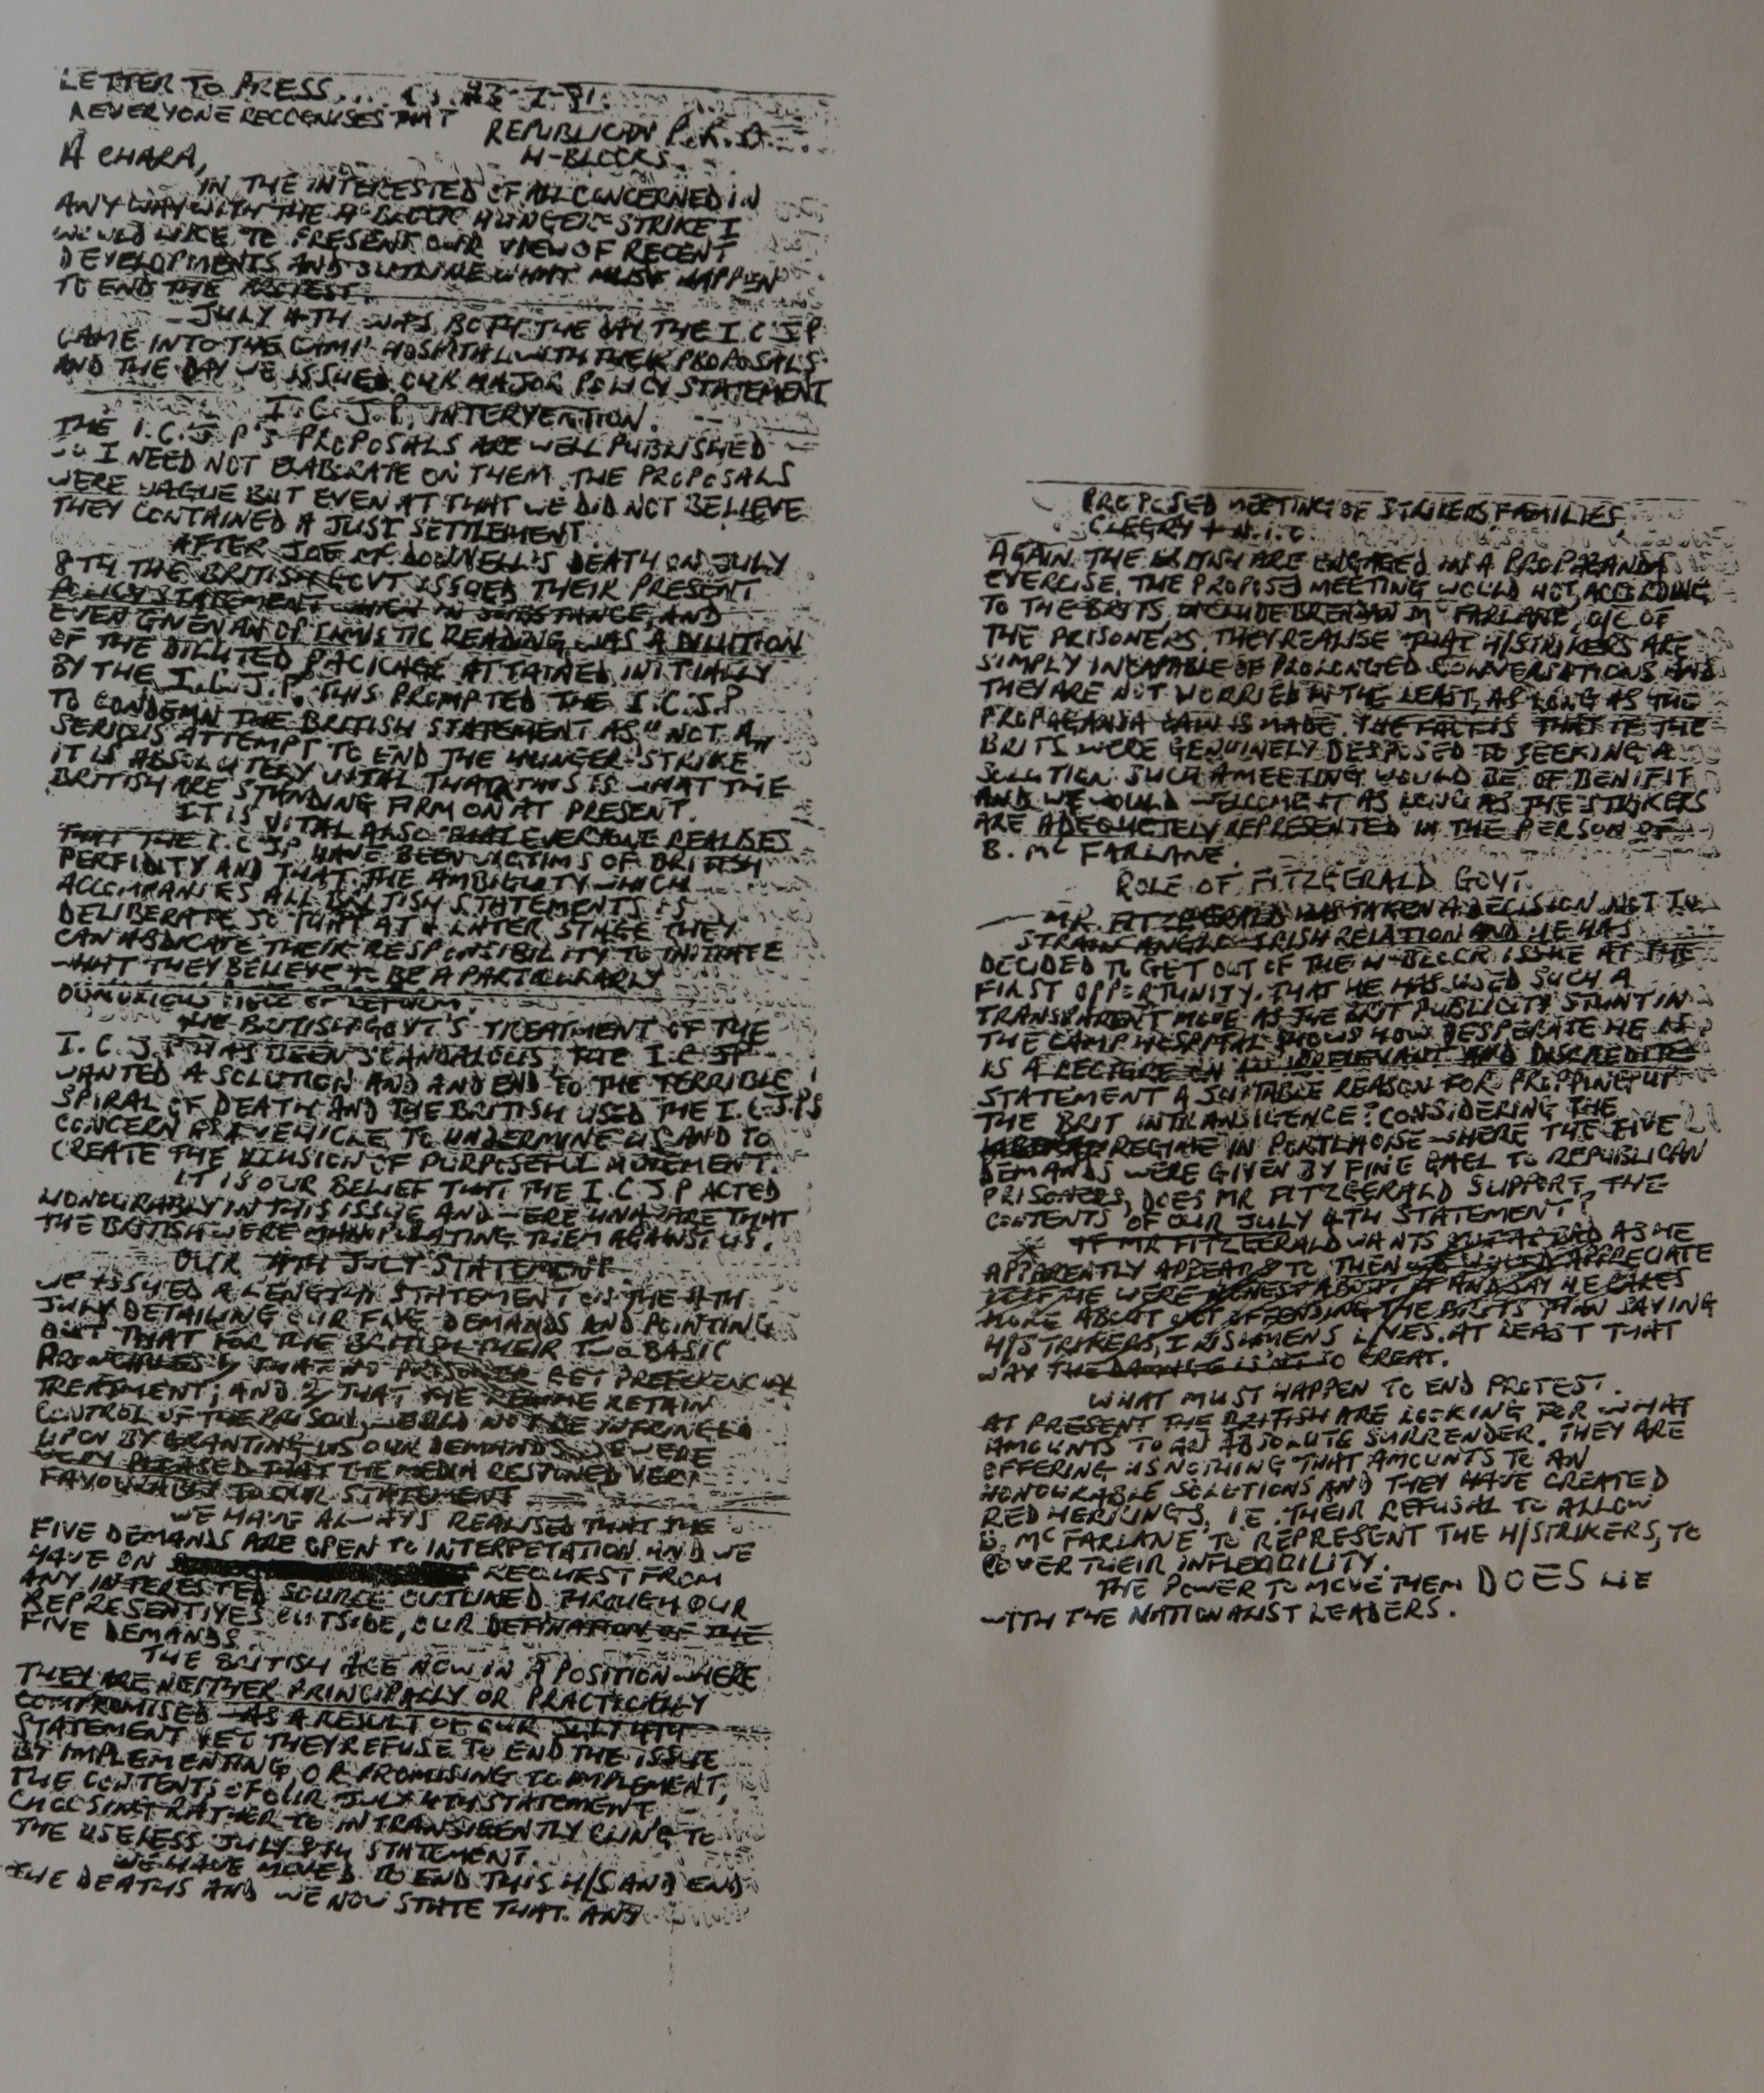 LETTER TO PRESS....
EVERYONE RECOGNISES THAT
REPUBLICAN P.R.O.
H-BLOCKS.
A CHARA,
IN THE INTERESTED OF ALL CONCERNED IN
ANY WAY WITH THE H-BLOCK HUNGER-STRIKE I
WOULD LIKE TO PRESENT OUR VIEW OF RECENT
DEVELOPMENTS AND OUTLINE WHAT MUST HAPPEN
TO END THE PROTEST.
JULY 4TH WAS BOTH THE DAY THE I.C.J.P
CAME INTO THE CAMP HOSPITAL WITH THEIR PROPOSALS
AND THE DAY WE ISSUED OUR MAJOR POLICY STATEMENT
I.C.J.P. INTERVENTION.
THE I.C.J.P'S PROPOSALS ARE WELL PUBLISHED
SO I NEED NOT ELABORATE ON THEM. THE PROPOSALS
WERE VAGUE BUT EVEN AT THAT WE DID NOT BELIEVE
THEY CONTAINED A JUST SETTLEMENT.
AFTER JOE MC DONNELL'S DEATH ON JULY
8TH THE BRITISH GOVT ISSUED THEIR PRESENT
POLICY STATEMENT WHICH IN SUBSTANCE, AND
EVEN GIVEN AN OPTIMISTIC READING, WAS A DILUTION
OF THE DILUTED PACKAGE ATTAINED INITIALLY
BY THE I.C.J.P. THIS PROMPTED THE I.C.J.P
TO CONDEMN THE BRITISH STATEMENT AS "NOT A
SERIOUS ATTEMPT TO END THE HUNGER-STRIKE.
IT IS ABSOLUTELY VITAL THAT THIS IS WHAT THE
BRITISH ARE STANDING FIRM ON AT PRESENT.
IT IS VITAL ALSO THAT EVERYONE REALISES
THAT THE I.C.J.P HAVE BEEN VICTIMS OF BRITISH
PERFIDITY AND THAT THE AMBIGUITY WHICH
ACCOMPANIES ALL BRITISH STATEMENTS IS
DELIBERATE SO THAT AT A LATER STAGE THEY
CAN ABDICATE THEIR RESPONSIBILITY TO INITIATE
WHAT THEY BELIEVE TO BE A PARTICULARLY
OF REFORM.
THE BRITISH GOVT'S TREATMENT OF THE
I.C.J.P HAS BEEN SCANDALOUS, THE I.C.J.P
WANTED A SOLUTION AND AND END TO THE TERRIBLE
SPIRAL OF DEATH AND THE BRITISH USED THE I.C.J.PS
CONCERN AS A VEHICLE TO UNDERMINE US AND TO
CREATE THE ILLUSION OF PURPOSEFUL MOVEMENT.
IT IS OUR BELIEF THAT THE I.C.J.P ACTED
HONOURABLY IN THIS ISSUE AND WERE UNAWARE THAT
THE BRITISH WERE MANIPULATING THEM AGAINST US.
OUR 4TH JULY STATEMENT
WE ISSUED A LENGTHY STATEMENT ON THE 4TH
JULY DETAILING OUR FIVE DEMANDS AND POINTING
OUT THAT FOR THE BRITISH THEIR TWO BASIC
PRINCIPLES 1) THAT NO PRISONER GET PREFERENCIAL
TREATMENT; AND 2) THAT THE REGIME RETAIN
CONTROL OF THE PRISON, WOULD NOT BE INFRINGED
UPON BY GRANTING US OUR DEMANDS. WE WERE
VERY PLEASED THAT THE MEDIA RESPONED VERY
FAVOURABLY TO OUR STATEMENT
WE HAVE ALWAYS REALISED THAT THE
FIVE DEMANDS ARE OPEN TO INTERPETATION AND WE
HAVE ON REQUEST FROM
ANY INTERESTED SOURCE OUTLINED THROUGH OUR
REPRESENTIVES OUTSIDE, OUR DEFINATION OF THE
FIVE DEMANDS.
THE BRITISH ARE NOW IN A POSITION WHERE
THEY ARE NEITHER PRINCIPALLY OR PRACTICALLY
COMPROMISED AS A RESULT OF OUR JULY 4TH
STATEMENT YET THEY REFUSE TO END THE ISSUE
BY IMPLEMENTING, OR PROMISING TO IMPLEMENT,
THE CONTENTS OF OUR JULY 4TH STATEMENT,
CHOOSING RATHER TO INTRANSIGENTLY CLING TO
THE USELESS JULY 8TH STATEMENT.
WE HAVE MOVED TO END THIS H/S AND END
THE DEATHS AND WE NOW STATE THAT ANY
PROPOSED MEETING OF STRIKERS, FAMILIES
CLERGY + N.I.O.
AGAIN THE BRITISH ARE ENGAGED IN A PROPAGANDA
EXERCISE. THE PROPOSED MEETING WOULD NOT, ACCORDING
TO THE BRITS, INCLUDE BRENDAN MC FARLANE, O/C OF
THE PRISONERS. THEY REALISE THAT H/STRIKERS ARE
SIMPLY INCAPABLE OF PROLONGED CONVERSATIONS AND
THEY ARE NOT WORRIED IN THE LEAST, AS LONG AS THE
PROPAGANDA GAIN IS MADE. THE FACT IS THAT IF THE
BRITS WERE GENUINELY DISPOSED TO SEEKING A
SOLUTION SUCH A MEETING WOULD BE OF BENIFIT
AND WE WOULD WELCOME IT AS LONG AS THE STRIKERS
ARE ADEQUETELY REPRESENTED IN THE PERSON OF
B. MC FARLANE.
ROLE OF FITZGERALD GOVT.
MR. FITZGERALD HAS TAKEN A DECISION NOT TO
STRAIN ANGLO-IRISH RELATION AND HE HAS
DECIDED TO GET OUT OF THE H-BLOCK ISSUE AT THE
FIRST OPPORTUNITY. THAT HE HAS USED SUCH A
TRANSPARENT MOVE AS THE BRIT PUBLICITY STUNT IN
THE CAMP HOSPITAL SHOWS HOW DESPERATE HE IS.
IS A LECTURE ON AN IRRELEVANT AND DISCREDITED
STATEMENT A SUITABLE REASON FOR PROPPING UP
THE BRIT INTRANSIGENCE? CONSIDERING THE
REGIME IN PORTLAOISE WHERE THE FIVE
DEMANDS WERE GIVEN BY FINE GAEL TO REPUBLICAN
PRISONERS, DOES MR FITZGERALD SUPPORT, THE
CONTENTS OF OUR JULY 4TH STATEMENT?
IF MR FITZGERALD WANTS AS HE
APPARENTLY APPEARS TO THEN WE WOULD APPRECIATE
IT IF HE WERE HONEST ABOUT IT AND SAY HE CARES
MORE ABOUT NOT OFFENDING THE BRITS THAN SAVING
H/STRIKERS, IRISHMENS LIVES. AT LEAST THAT
WAY THE DAMAGE IS NOT SO GREAT.
WHAT MUST HAPPEN TO END PROTEST.
AT PRESENT THE BRITISH ARE LOOKING FOR WHAT
AMOUNTS TO AN ABSOLUTE SURRENDER. THEY ARE
OFFERING US NOTHING THAT AMOUNTS TO AN
HONOURABLE SOLUTIONS AND THEY HAVE CREATED
RED HERRINGS, I.E. THEIR REFUSAL TO ALLOW
B. MC FARLANE TO REPRESENT THE H/STRIKERS, TO
COVER THEIR INFLEXIBILITY.
THE POWER TO MOVE THEM DOES LIE
WITH THE NATIONALIST LEADERS.